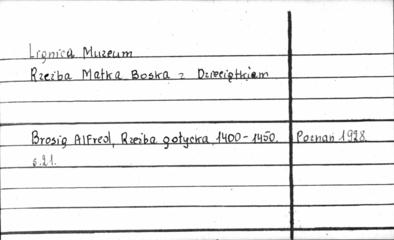 Legnica Muzeum
Rzeźba Matka Boska z Dzieciątkiem
Brosig Alfred, Rzeźba gotycka, 1400-1450. Poznań 1928.
s.21.